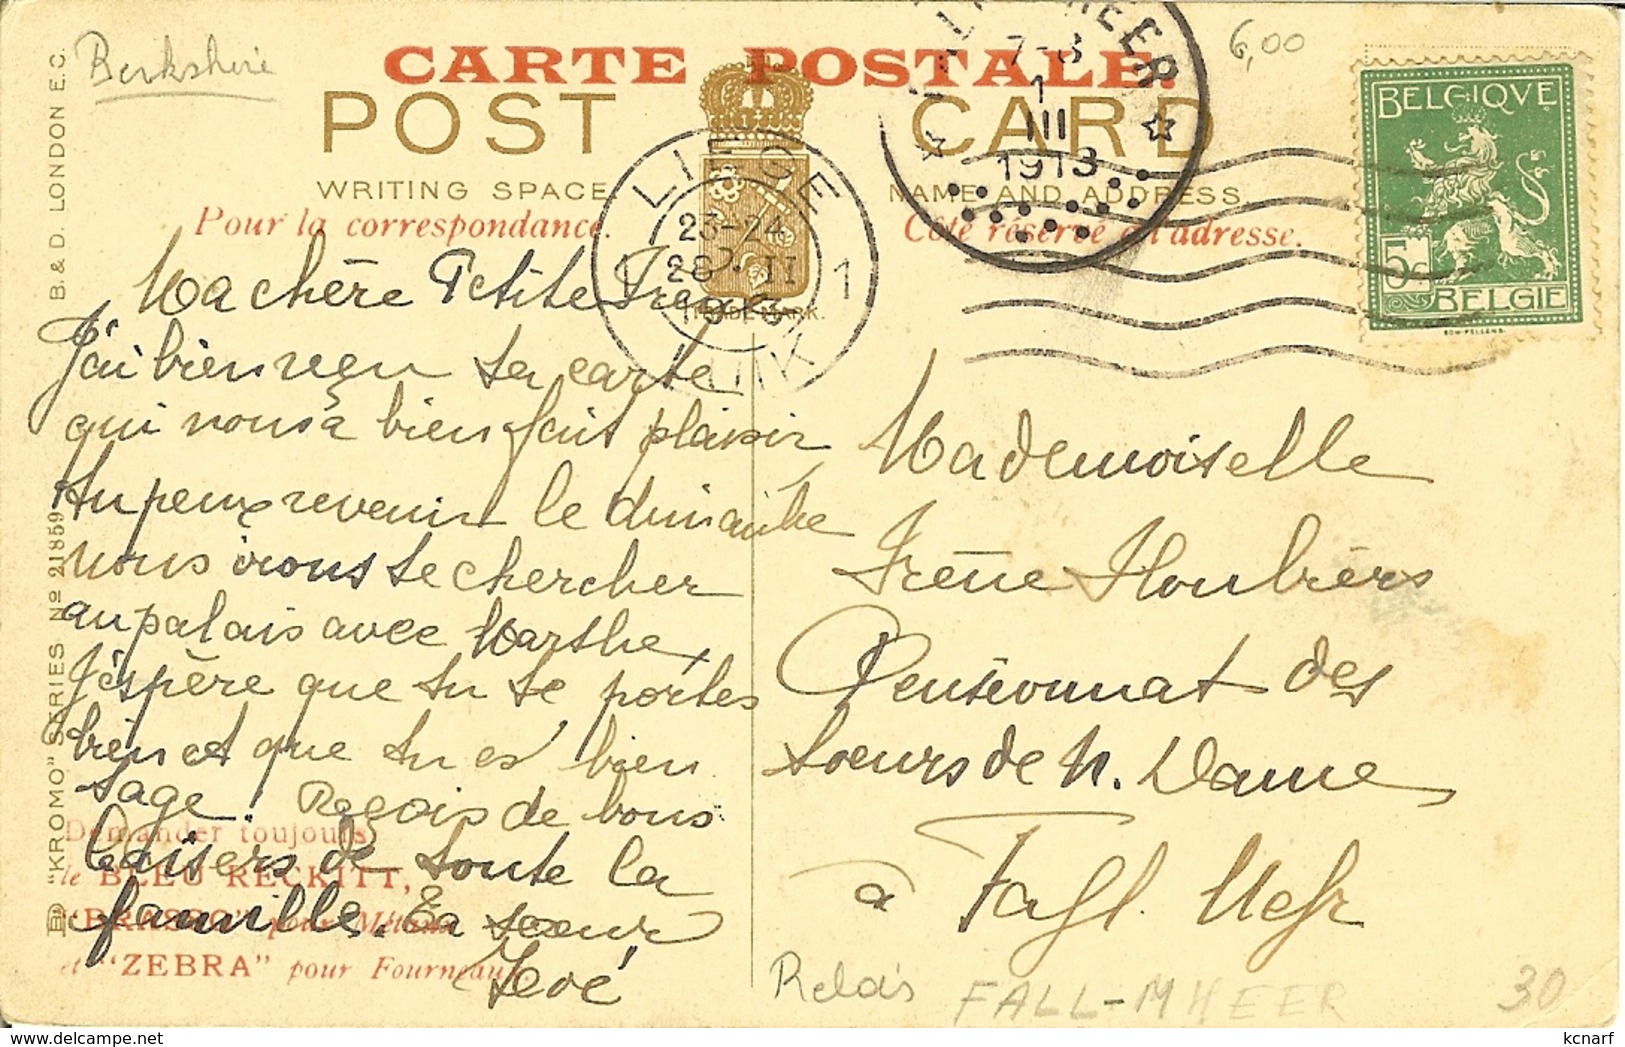 Berkshire
6,00
CARTE POSTALE.
POST CARD
WRITING SPACE
NAME AND ADDRESS.
Pour la correspondance.
Côté réservé à l'adresse.
TRADE MARK.
LIEGE 1
23-24
28 II
1913
LUIK
7-8
1
III
1913
BELGIQVE
5c
BELGIE
Ma chère Petite Irène
J'ai bien reçu ta carte
qui nous a bien fait plaisir
tu peux revenir le dimanche
nous irons te chercher
au palais avec Marthe,
J'éspère que tu te portes
bien et que tu es bien
sage. Reçois de bons
baisers de toute la
famille. Ta sœur
Mademoiselle
Irène
Pensionnat des
Sœurs de N. Dame
à
Demander toujours
le BLEU RECKITT,
"BRASSO" pour Métaux
et "ZEBRA" pour Fourneaux.
B. & D. LONDON E.C.
"KROMO" SERIES No 21859
Relais
FALL-MHEER
30
kcnarf